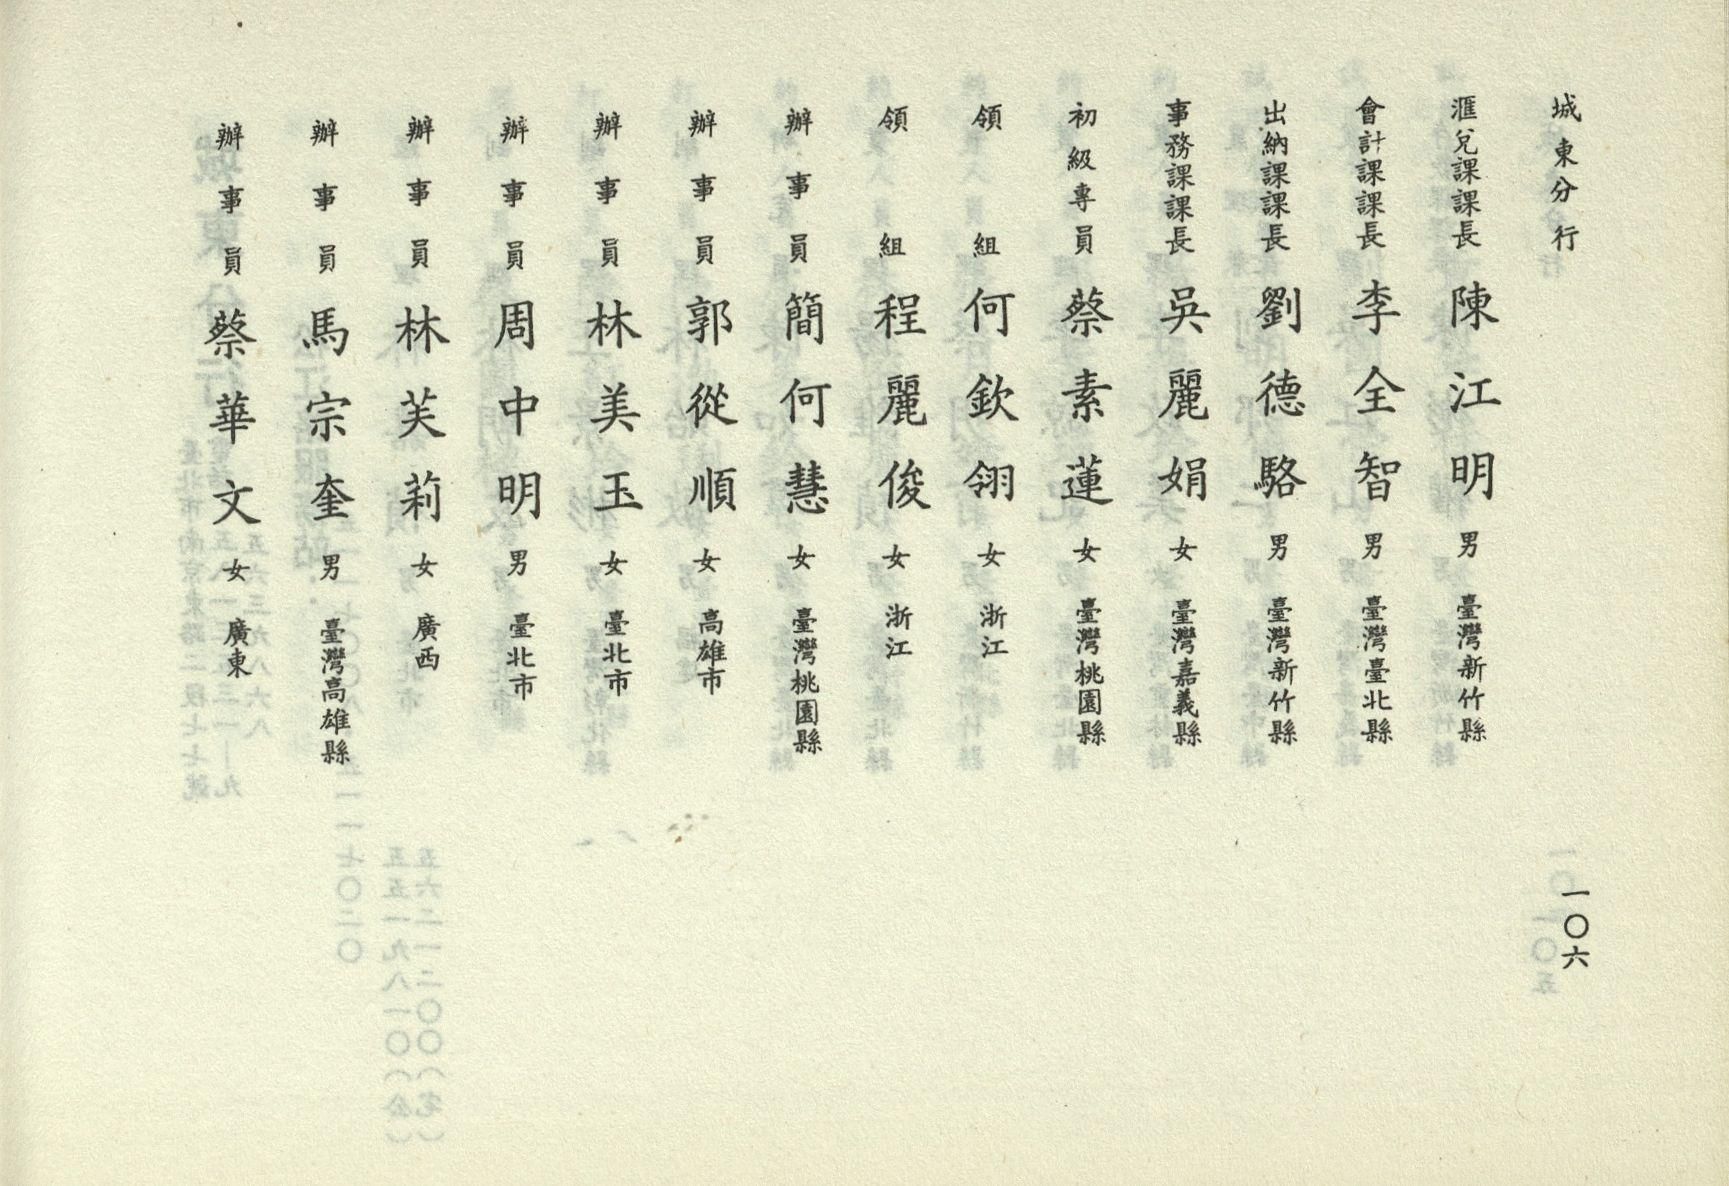 城東分行
一〇六
滙兌課課長 陳江明 男 臺灣新竹縣
會計課課長 李全智 男 臺灣臺北縣
出納課課長 劉德駱 男 臺灣新竹縣
事務課課長 吳麗娟 女 臺灣嘉義縣
初級專員 蔡素蓮 女 臺灣桃園縣
領組 何欽翎 女 浙江
領組 程麗俊 女 浙江
辦事員 簡何慧 女 臺灣桃園縣
辦事員 郭從順 女 高雄市
辦事員 林美玉 女 臺北市
辦事員 周中明 男 臺北市
辦事員 林芙莉 女 廣西
辦事員 馬宗奎 男 臺灣高雄縣
辦事員 蔡華文 女 廣東